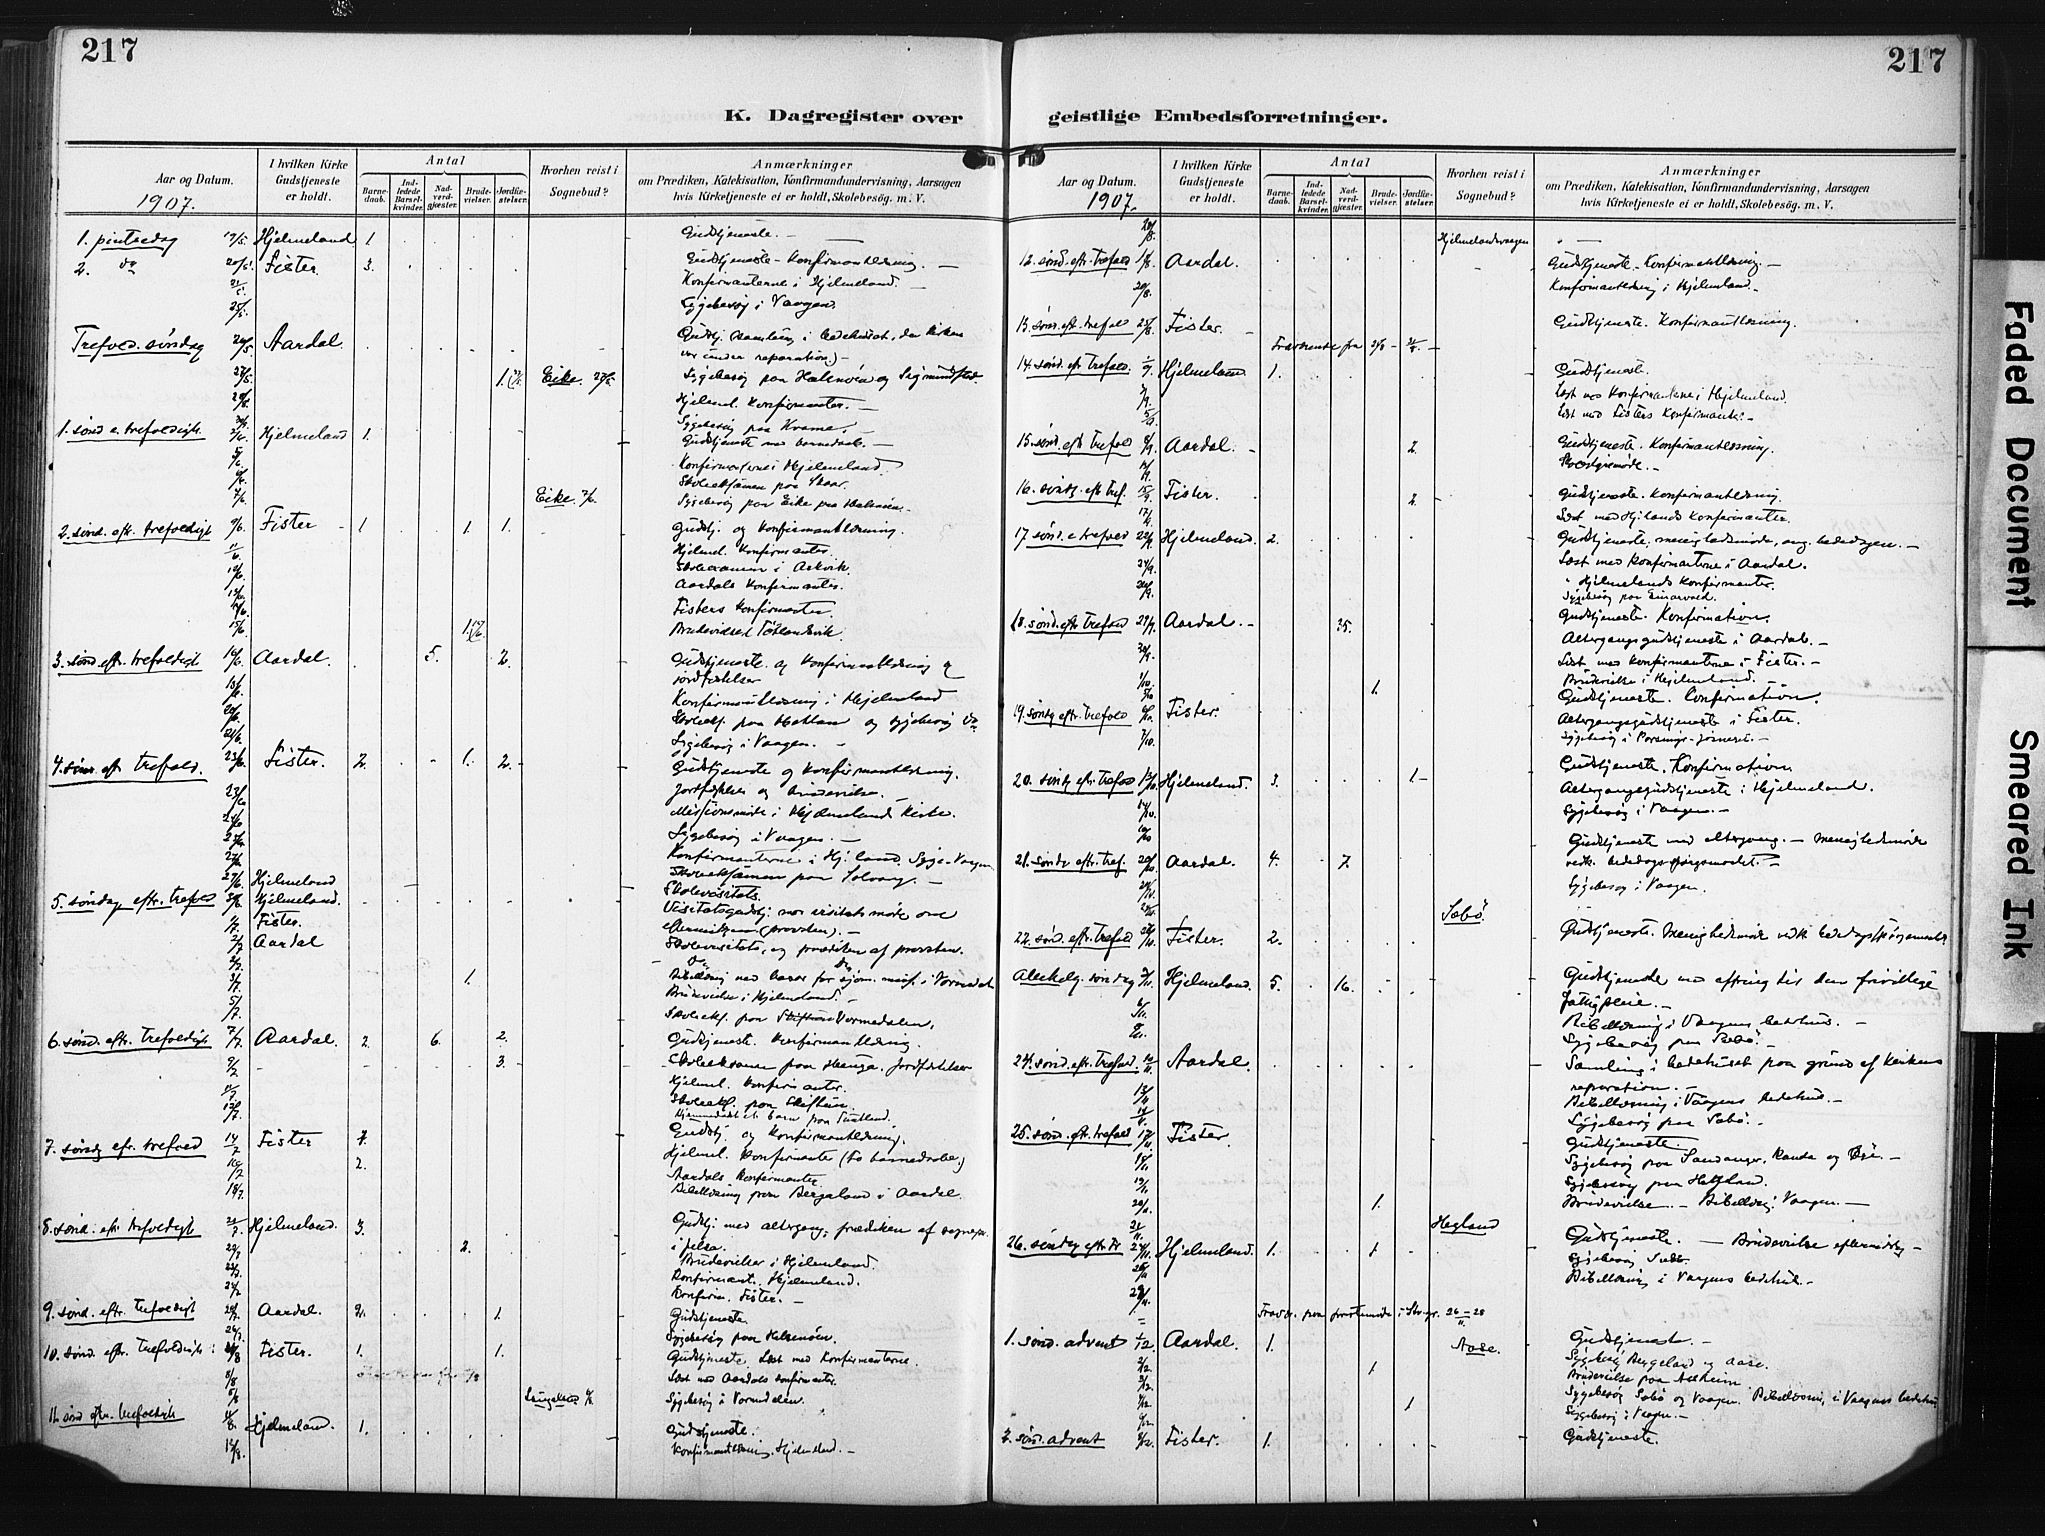 217
K. Dagregister over
Aar og Datum.
1907.
I hvilken Kirke Gudstjeneste er holdt.
Antal
Barne-daab.
Ind-ledede Barsel-kvinder.
Nad-verd-gjæster.
Brude-vielser.
Jordfæ-stelser.
Hvorhen reist i Sognebud?
Anmærkninger
om Prædiken, Katekisation, Konfirmandundervisning, Aarsagen
hvis Kirketjeneste ei er holdt, Skolebesøg. m. V.
1. pintsedag 19/5 Hjelmeland 1 Gudstjeneste. —
2. do 20/5 Fister. 3. Gudstjeneste - Konfirmantlæsning. —
Konfirmanterne i Hjelmeland. —
25/5. Sygebesøg i Vaagen.
Trefold. søndag 26/5 Aardal. Gudstj. samling i bedehuset, da kirken
var under reparation) —
27/5. 1. Eike. 27/5. Sygebesøg paa Halsnøen og Sigmundstad.
Hjelmel. Konfirmanter. —
Sygebesøg paa Kvame. —
1. sønd e. trefoldigh. 2/6. Hjelmeland 1. Gudstjeneste med barnedaab. —
5/6. Konfirmanterne i Hjelmeland.
Skoleeksamen paa Skaar.
7/6. Eike 7/6. Sygebesøg paa Eike paa Halsnøen.
2. sønd. eft. trefoldigh 9/6. Fister 1. 1. 1. Gudstj. og Konfirmantlæsning.
11/6. Hjelmel. Konfirmanter.
Skoleexamen i Arkvik.
Aardals Konfirmanter.
Fisters Konfirmanter.
15/6. Brudevielse
3. sønd. eftr. trefoldigh 16/6. Aardal. 5. 2. Gudstjeneste og Konfirmantlæsning og
jordfæstelser
18/6. Konfirmantlæsning i Hjelmeland
20/6. Skoleeks. paa Hetland og sygebesøg do.
21/6. Sygebesøg i Vaagen. —
4. sønd. eft trefold. 23/6. Fister. 2. 1. 2. Gudstjeneste og Konfirmantlæsning.
Jordfæstelse og brudevielse. —
Missionsmøde i Hjelmeland Kirke.
Sygebesøg i Vaagen. —
Konfirmanterne i Hj.land. Syge-Vaagen
27/6. Hjelmeland Skoleeksamen paa Solvang. —
Skolevisitats.
5. søndag eftr. trefold 30/6. Hjelmeland. Visitatsgudstj. med visitatsmøde om
1/7. Fister. eftermiddagen (provsten). —
2/7. Aardal Skolevisitats, og prædiken af provsten.
Do Do
3/7. 1. Bibellæsning med basar for sjøm. miss. i Vormedal
Brudevielse i Hjelmeland. —
5/7. Skoleeks. paa Vormedalen.
6. sønd. eftr. trefoldigh 7/7. Aardal. 2. 6. 2. Gudstjeneste. Konfirmantlæsning.
9/7. 3. Skoleeksamen paa Hauga. Jordfæstelser
Hjelmel. Konfirmanter.
12/7. Skoleeks. paa Skiftun.
Hjemmedøbt et barn paa
7. søndg eftr. trefold 14/7 Fister 1. Gudstj. og Konfirmantlæsning.
16/7. 2. Hjelmel. Konfirmanter (to barnedaaber.)
Aardals Konfirmanter.
18/7. Bibellæsning paa Bergeland i Aardal.
8. sønd. eft trefoldigh 21/7 Hjelmeland. 3. Gudstj. med altergang, prædiken af sognepr.
i Jelsa.
2. Brudevielser i Hjelmeland.
23/7. Konfirmant. Hjelmeland.
Konfirm. Fister. —
9. sønd. eftr. trefoldigt 28/7. Aardal. 2. 1. Gudstjeneste
Sygebesøg paa Halsenøen.
10. sønd. eftr. trefoldigh. 4/8 Fister. 1. 1. Gudstjeneste. Læst med Konfirmanterne.
5/8 Læst med Aardals konfirmanter.
Sygebesøg i Vormedalen.
11. sønd eftr. trefoldigh 11/8. Hjelmeland. 1. Gudstjeneste.
Konfirmantlæsning. Hjelmeland. —
217
geistlige Embedsforretninger.
Aar og Datum.
1907.
I hvilken Kirke Gudstjeneste er holdt.
Antal
Barne-daab.
Ind-ledede Barsel-kvinder.
Nad-verd-gjæster.
Brude-vielser.
Jordfæ-stelser.
Hvorhen reist i Sognebud?
Anmærkninger
om Prædiken, Katekisation, Konfirmandundervisning, Aarsagen
hvis Kirketjeneste ei er holdt, Skolebesøg. m. V.
Hjelmelandsvaagen
12. sønd. eftr. trefold 18/8. Aardal. Gudstjeneste. Konfirmantlæsning. —
20/8. Konfirmantlæsning i Hjelmeland. —
13. sønd. eft. trefold 25/8. Fister. Gudstjeneste. Konfirmantlæsning.
Fraværende fra 26/8 — 31/8. —
14. sønd. eft trefold. 1/9. Hjelmeland 1. Gudstjeneste.
3/9. Læst med Konfirmanterne i Hjelmeland.
5/9. Læst med Fisters Konfirmanter —
15. sønd. eft trefold 8/9. Aardal. 2. Gudstjeneste. Konfirmantlæsning.
Skolestyremøde. —
16. søndg. eft tref. 15/9. Fister. 2. Gudstjeneste. Konfirmantlæsning.
17/9. Læst med Hj.lands Konfirmanter.
17 sønd. e trefold 22/9. Hjelmeland. 2. Gudstjeneste, menighedsmøde, ang. bededagen. —
24/9. Læst med Konfirmanterne i Aardal.
26/9. " Hjelmelands Konfirmanter.
Sygebesøg paa
18. sønd. eftr trefold 29/9. Aardal. 35. Gudstjeneste. Konfirmation.
Altergangsgudstjeneste i Aardal. —
Læst med Konfirmanterne i Fister. —
1. Brudevielse i Hjelmeland. —
19. søndg eftr. trefold 6/10. Fister. Gudstjeneste. Confirmation.
Altergangsgudstjeneste i Fister.
7/10. Sygebesøg i
20. søndg eftr. trefold 13/10. Hjelmeland. 3. 1. Gudstjeneste. Konfirmation
Altergangsgudstjeneste i Hjelmeland.
Sygebesøg i Vaagen. —
21. søndg eftr. tref. 20/10. Aardal. 4. 7. Gudstjeneste med altergang. — Menighedsmøde
vedk. bededagsspørgsmaalet. —
Sygebesøg i Vaagen.
Sæbø.
22. sønd. eftr. trefold 27/10. Fister. 2. Gudstjeneste. Menighedsmøde vedk bededagsspørgsmaalet
Allehelg. søndag 3/11. Hjelmeland. 5. 16. Gudstjeneste med ofring til den frivillige
fattigpleie. —
Bibellæsning i Vaagens bedehus. —
Sygebesøg paa Sæbø. —
24. sønd. eftr. trefold. 10/11. Aardal. Samling i bedehuset paa grund af Kirkens
reparation. —
13/11 Bibellæsning i Vaagens bedehus. —
Sygebesøg paa Sæbø. —
25. sønd. eft. trefold 17/11. Fister Gudstjeneste.
18/11. Sygebesøg paa Sandanger, Randa og —
Sygebesøg paa Hetland.
20/11. 1. Brudevielse. — Bibellæsn. i Vaagen. —
Hegland
26. søndag eftr. Tr. 24/11. Hjelmeland. 1. 1 Gudstjeneste. — Brudevielse eftermiddg —
Sygebesøg
Bibellæsning i Vaagens bedehus. —
Fravær. paa prestemøde i Stvgr. 26 — 28/11.
1. sønd. advent 1/12. Aardal. 1. Gudstjeneste. —
Aase.
2/12. 1 Sygebesøg Bergeland og Aase.
3/12. Brudevielse paa
1 Sygebesøg Sæbø og Vaagen. Bibellæsning i Vaagens bedehus
Sygebesøg i Vaagen. —
2. sønd. advent 8/12. Fister. 1. Gudstjeneste.
Faded Document
Smeared Ink